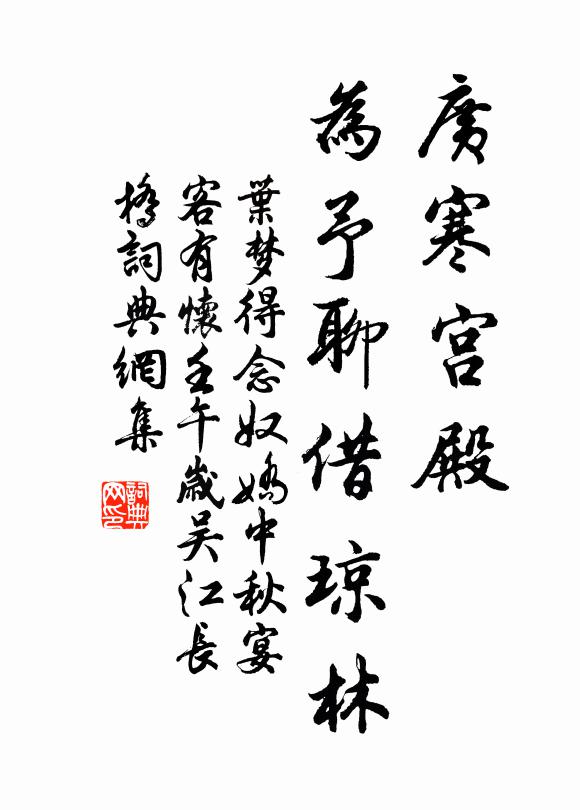 廣寒宮殿
為予聊借琼林
葉梦得念奴嬌中秋宴
客有懷壬午歲吴江長
橋詞典網集
詞典网印